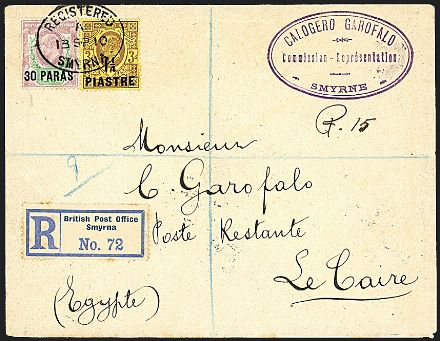 REGISTERED
A
SMYRNE
30 PARAS
PIASTRE
CALOGERO GAROFALO
Commission - Représentation
SMYRNE
R. 15
Monsieur
9
C. Garofalo
Poste Restante
Le Caire
(Egypte)
R
British Post Office
Smyrna
No. 72